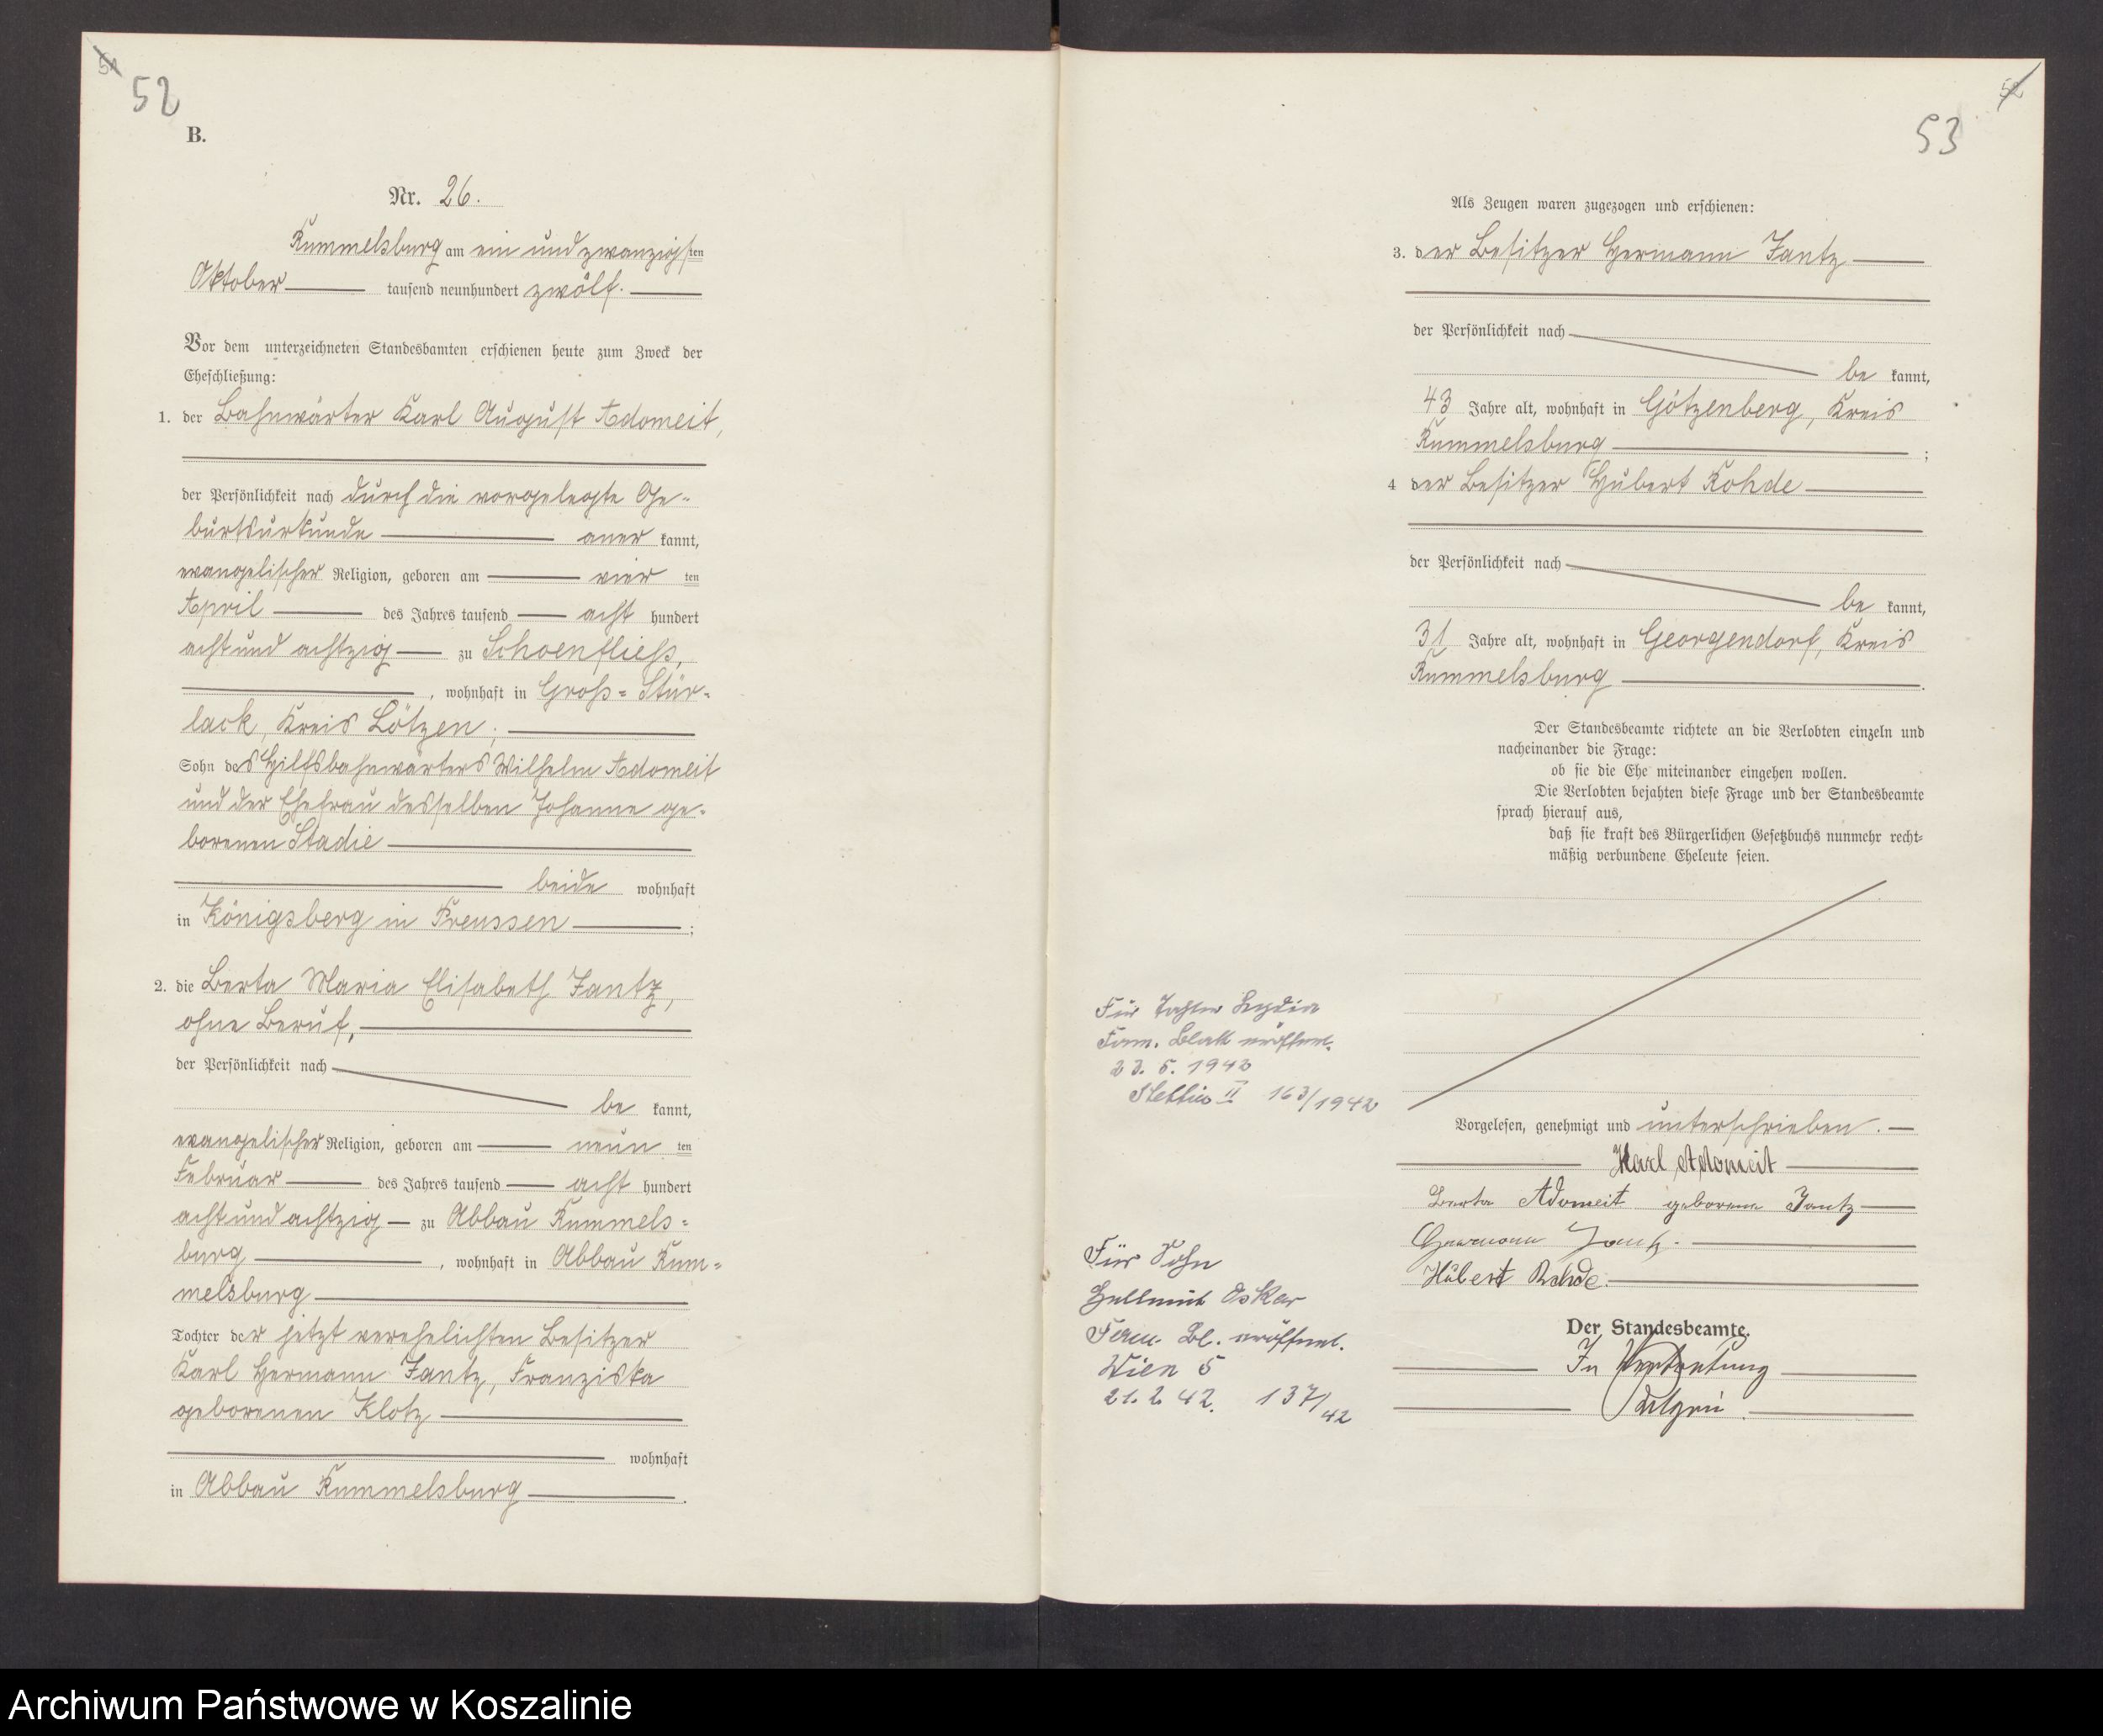 51
52
B.
Nr. 26.
Rummelsburg am ein und zwanzigsten
Oktober tausend neunhundert zwölf.
Vor dem unterzeichneten Standesbamten erschienen heute zum Zweck der
Eheschließung:
1. der Bahnwärter Karl August Adomeit,
der Persönlichkeit nach durch die vorgelegte Ge-
burtsurkunde aner kannt,
evangelischer Religion, geboren am vier ten
April des Jahres tausend acht hundert
acht und achtzig zu Schoenfliess,
, wohnhaft in Gross-Stür-
lack, Kreis Lötzen,
Sohn des Hilfsbahnwärters Wilhelm Adomeit
und der Ehefrau desselben Johanne ge-
borenen Stadie
beide wohnhaft
in Königsberg in Preussen ;
2. die Berta Maria Elisabeth Jantz,
ohne Beruf,
der Persönlichkeit nach
be kannt,
evangelischer Religion, geboren am neun ten
Februar des Jahres tausend acht hundert
acht und achtzig zu Abbau Rummels-
burg , wohnhaft in Abbau Rum-
melsburg
Tochter der jetzt verehelichten Besitzer
Karl Hermann Jantz, Franziska
geborenen Klotz
wohnhaft
in Abbau Rummelsburg .
52
53
Als Zeugen waren zugezogen und erschienen:
3. der Besitzer Hermann Jantz
der Persönlichkeit nach
be kannt,
43 Jahre alt, wohnhaft in Götzenberg, Kreis
Rummelsburg ;
4 der Besitzer Hubert Rohde
der Persönlichkeit nach
be kannt,
31 Jahre alt, wohnhaft in Georgendorf, Kreis
Rummelsburg .
Der Standesbeamte richtete an die Verlobten einzeln und
nacheinander die Frage:
ob sie die Ehe miteinander eingehen wollen.
Die Verlobten bejahten diese Frage und der Standesbeamte
sprach hierauf aus,
daß sie kraft des Bürgerlichen Gesetzbuchs nunmehr recht-
mäßig verbundene Eheleute seien.
Für Tochter Lydia
Fam. Blatt eröffnet.
23. 5. 1942
Stettin II 163/1942
Vorgelesen, genehmigt und unterschrieben.
Karl Adomeit
Berta Adomeit geborene Jantz
Hermann Jantz.
Hubert Rohde.
Für Sohn
Hellmut Oskar
Fam. Bl. eröffnet.
Wien 5
21. 2. 42. 137/42
Der Standesbeamte.
In Vertretung
Archiwum Państwowe w Koszalinie